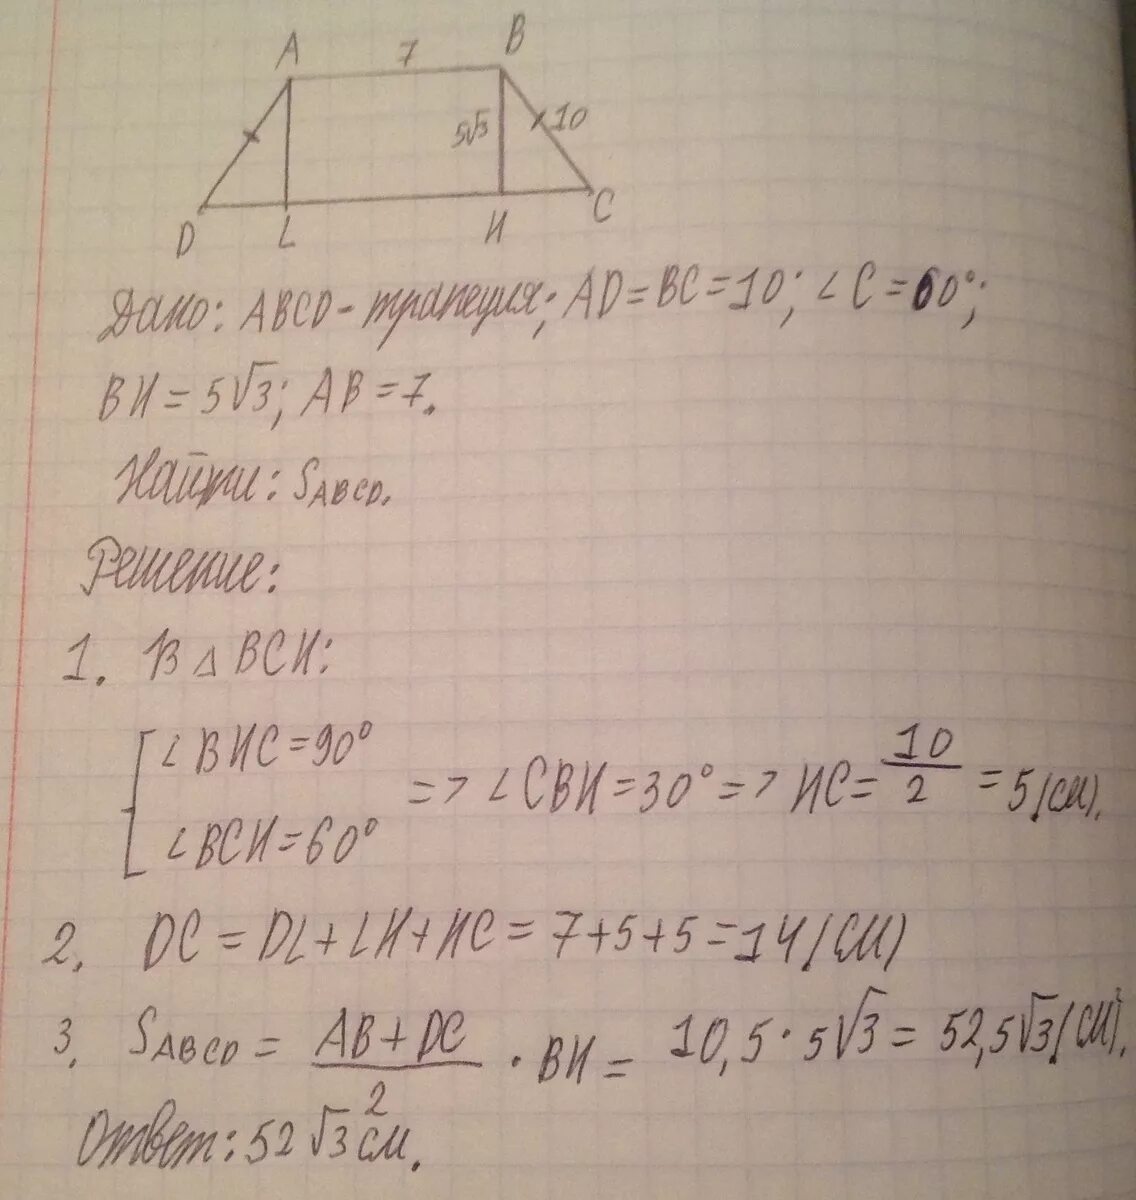 A 7 B
5√3 10
D L H C
Дано: ABCD - трапеция; AD = BC = 10; ∠C = 60°;
BH = 5√3; AB = 7.
Найти: S_ABCD.
Решение:
1. В △ BCH:
[ ∠BHC = 90°
∠BCH = 60° => ∠CBH = 30° => HC = 10/2 = 5 (см).
2. DC = DL + LH + HC = 7 + 5 + 5 = 14 (см)
3. S_ABCD = (AB + DC)/2 · BH = 10,5 · 5√3 = 52,5√3 (см²).
Ответ: 52√3 см².